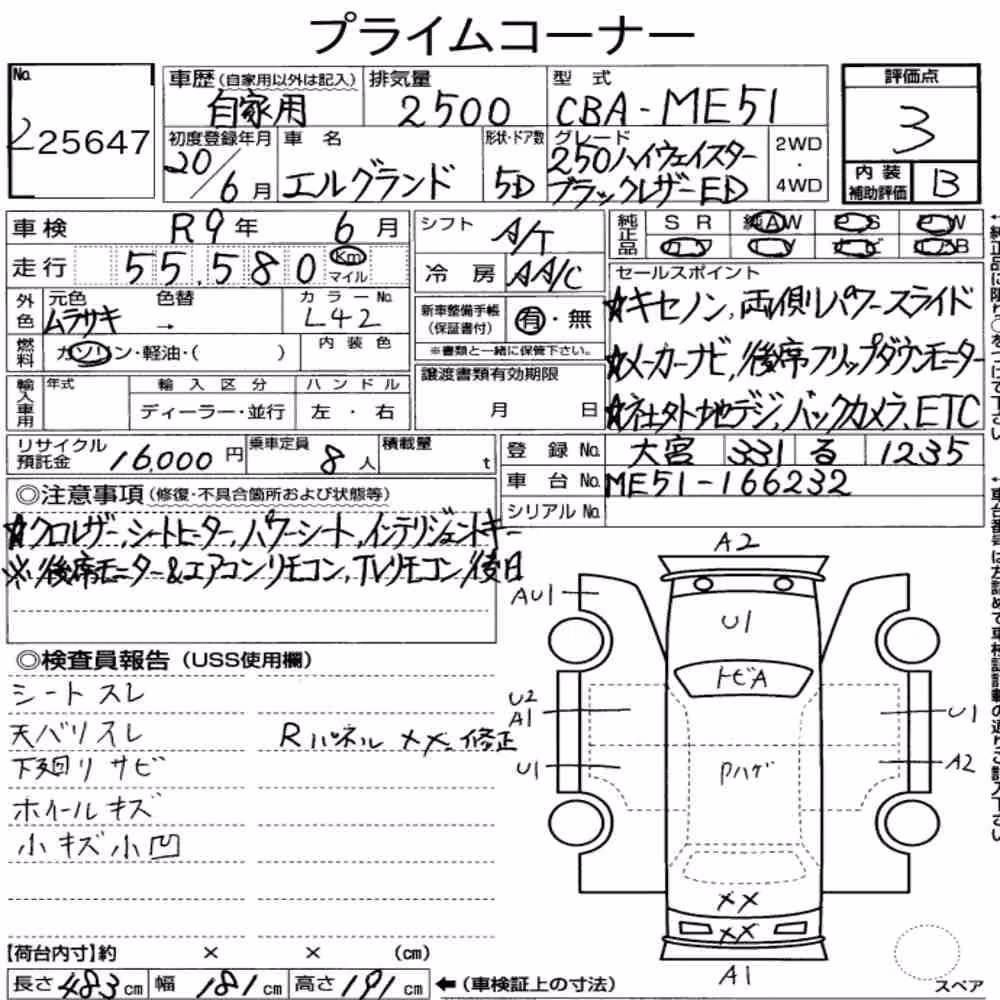 プライムコーナー
No. 225647
車歴 (自家用以外は記入) 自家用
排気量 2500
型式 CBA-ME51
評価点 3
初度登録年月 20/6月
車名 エルグランド
形状・ドア数 5D
グレード 250ハイウェイスター ブラックレザーED
2WD ・ 4WD
内装補助評価 B
車検 R9年 6月
シフト A/T
純正品 SR 純AW PS PW
走行 55,580 Km マイル
冷房 AA/C
外色 元色 ムラサキ 色替 → カラーNo. L42
セールスポイント
☆キセノン, 両側パワースライド
☆メーカーナビ, 後席フリップダウンモニター
☆社外地デジ, バックカメラ, ETC
新車整備手帳 (保証書付) 有・無
※書類と一緒に保管下さい。
燃料 ガソリン・軽油・( ) 内装色
輸入車用 年式 輸入区分 ディーラー・並行 ハンドル 左・右
譲渡書類有効期限 月 日
リサイクル預託金 16,000円
乗車定員 8人
積載量 t
登録No. 大宮 331 る 1235
車台No. ME51-166232
シリアルNo.
◎注意事項 (修復・不具合箇所および状態等)
☆クロレザー, シートヒーター, パワーシート, インテリジェントキー
※後席モニター&エアコンリモコン, TVリモコン後日
◎検査員報告 (USS使用欄)
シートスレ
天バリスレ
Rパネル XX=修正
下廻りサビ
ホイールキズ
小キズ小凹
A2
AU1
U1
トビA
U2
A1
U1
U1
A2
Pハゲ
XX
XX
A1
スペア
【荷台内寸】約 × × (cm)
長さ 483cm 幅 181cm 高さ 191cm
←(車検証上の寸法)